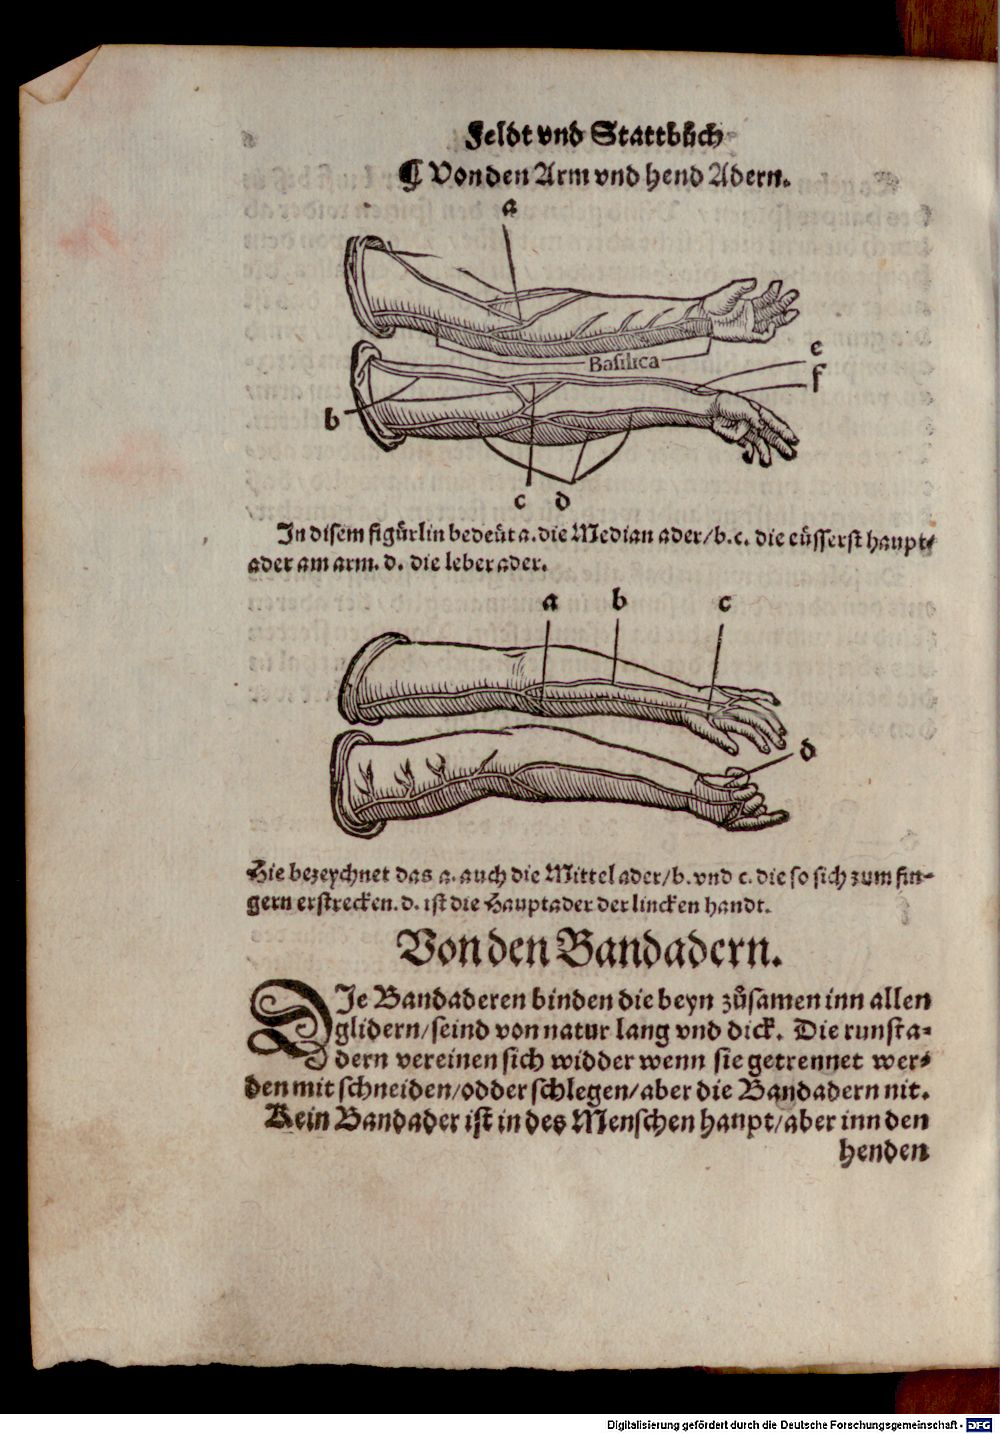 Feldt vnd Stattbuͤch
¶ Von den Arm vnd hend Adern.
a
Basilica
e
f
b
c d
In disem figuͤrlin bedeuͤt a. die Median ader/ b. c. die euͤsserst haupt⸗
ader am arm. d. die leber ader.
a b c
d
Hie bezeychnet das a. auch die Mittel ader/ b. vnd c. die so sich zum fin⸗
gern erstrecken. d. ist die Hauptader der lincken handt.
Von den Bandadern.
DIe Bandaderen binden die beyn zuͦsamen inn allen
glidern/ seind von natur lang vnd dick. Die runsta⸗
dern vereinen sich widder wenn sie getrennet wer⸗
den mit schneiden/ odder schlegen/ aber die Bandadern nit.
Kein Bandader ist in des Menschen haupt/ aber inn den
henden
Digitalisierung gefördert durch die Deutsche Forschungsgemeinschaft - DFG